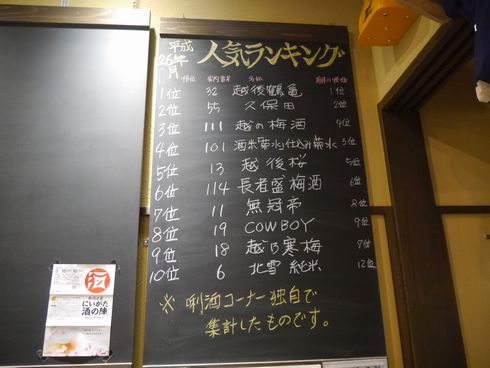 平成
26年 人気ランキング
月
順位 案内番号 名称 前月の順位
1位 32 越後鶴亀 1位
2位 55 久保田 2位
3位 111 越の梅酒 4位
4位 101 酒米菊水仕込み菊水 3位
5位 13 越後桜 5位
6位 114 長者盛梅酒 6位
7位 11 無冠帝 8位
8位 19 COWBOY 9位
9位 18 越乃寒梅 7位
10位 6 北雪 純米 12位
※ 唎酒コーナー独自で
集計したものです。
酒
にいがた
酒の陣